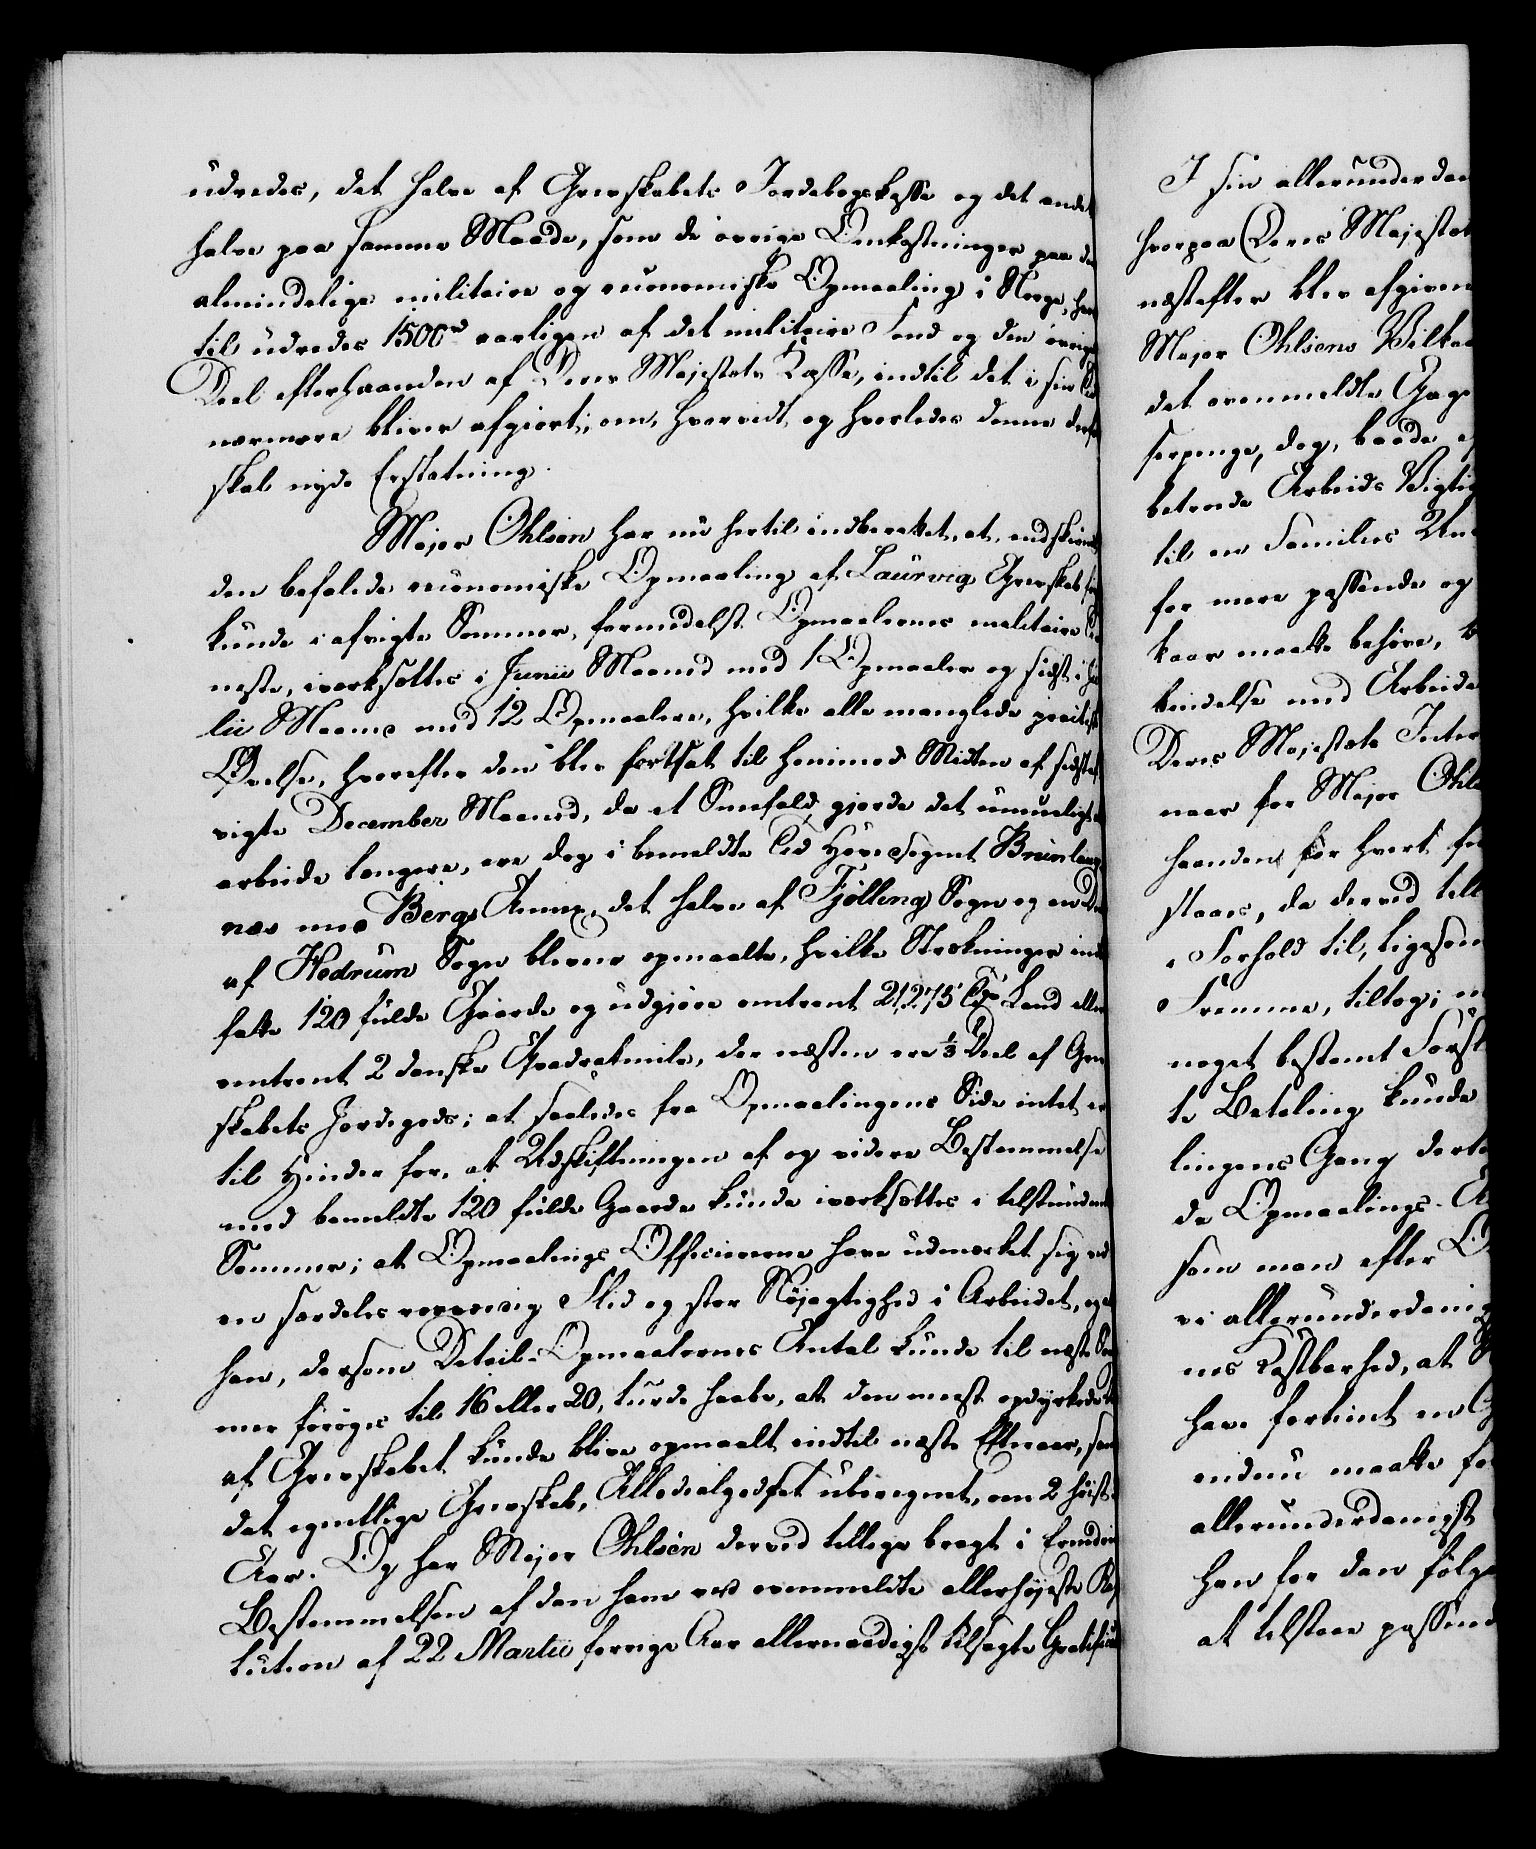 udredes, det halve af Grevskabets Jordebogskasse og det andet
halve paa samme Maade, som de øvrige Omkostninger paa den
almindelige militaire og oeconomiske Opmaaling i Norge,
til udredes 1500rd aarligen af det militaire Fond og den øvrige
Deel efterhaanden af Deres Majestæts Kasse, indtil det i sin Tid
nærmere bliver afgiort, om, hvorvidt, og hvorledes denne derfor
skal nyde Erstatning.
Major Ohlsen har nu hertil indberettet, at, endskiønt
den befalede oeconomiske Opmaaling af Laurvig Grevskab
kunde i afvigte Sommer, formedelst Opmaalernes militaire Tie
neste, iværksættes i Junii Maaned med 1 Opmaaler og sidst i Ju
lii Maaned med 12 Opmaalere, hvilke alle manglede practisk
Øvelse, hvorefter den blev fortsat til henimod Midten af sidstaf
vigte December Maaned, da et Sneefald gjorde det umueligt at
arbeide længere, ere dog i bemeldte Tid Hovedsognet Brunlaug
næs med Bergs Annex, det halve af Fjølling Sogn og en Deel
af Hedrum Sogn blevne opmaalte, hvilke Strækninger inde
fatte 120 fulde Gaarde og udgjøre omtrent 21,275 Tdr Land eller
omtrent 2 danske Qvadratmile, der næsten ere 1/3 Deel af Grev
skabets Jordegods; at saaledes fra Opmaalingens Side intet er
til Hinder for, at Udskiftningen af og videre Bestemmelse
med bemeldte 120 fulde Gaarde kunde iværksættes i tilstundende
Sommer; at Opmaalings Officiererne have udmærket sig ved
en særdeles roesværdig Flid og stor Nøjagtighed i Arbeidet, og at
han, dersom Detail-Opmaalernes Antal kunde til næste Som
mer forøges til 16 eller 20, turde haabe, at den meest opdyrkede Deel
af Grevskabet kunde blive opmaalt indtil næste Efteraar, samt
det egentlige Grevskab, Allodialgodset uberegnet, om 2 høist 3
Aar. Og har Major Ohlsen derved tillige bragt i Erindring
Bestemmelsen af den ham ved ovenmeldte allerhøjeste Reso
lution af 22 Martii forrige Aar allernaadigst tilsagte Gratification

I sin allerunderdan
hvorpaa Deres Majestæt
næstefter blev afgiven
Major Ohlsens Vilkaar
det ovenmeldte Gage
serpenge, dog, baade
betroede Arbeids Vigtig
til en Families Un
for mere passende og
kaar maatte behøve,
bindelse med Arbeide
Deres Majestæts Inter
naar for Major Ohls
haanden for hvert
staaer, da derved till
i Forhold til, ligesom
Fremme, tiltog;
noget bestemt Forsl
te Betaling kunde
lingens Gang derte
de Opmaalings-
som man efter
vi allerunderdanig
nes Kostbarhed, at
have fortient en
endnu maatte fo
allerunderdanigst
han for den følge
at tilstaae passend